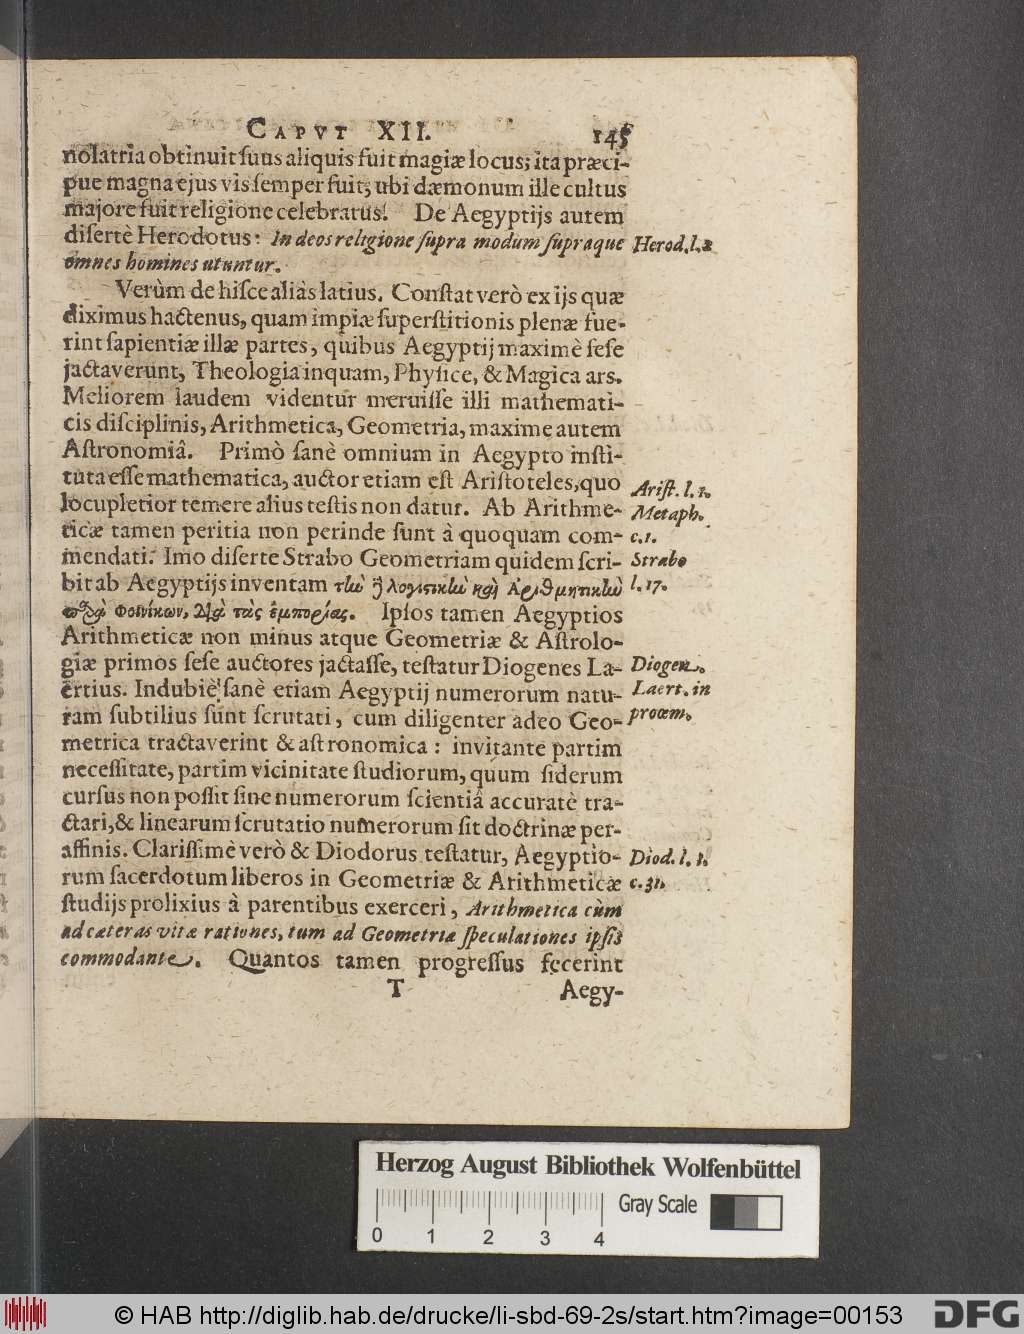 CAPVT XII. 145
nolatria obtinuit suus aliquis fuit magiæ locus; ita præci-
pue magna ejus vis semper fuit, ubi dæmonum ille cultus
majore fuit religione celebratus. De Aegyptijs autem
disertè Herodotus: In deos religione supra modum supraque
omnes homines utuntur.
Herod. l. 2
Verùm de hisce aliàs latius. Constat verò ex ijs quæ
diximus hactenus, quam impiæ superstitionis plenæ fue-
rint sapientiæ illæ partes, quibus Aegyptij maximè sese
jactaverunt, Theologia inquam, Physice, & Magica ars.
Meliorem laudem videntur meruisse illi mathemati-
cis disciplinis, Arithmetica, Geometria, maxime autem
Astronomiâ. Primò sanè omnium in Aegypto insti-
tuta esse mathematica, auctor etiam est Aristoteles, quo
locupletior temere alius testis non datur. Ab Arithme-
ticæ tamen peritia non perinde sunt à quoquam com-
mendati. Imo diserte Strabo Geometriam quidem scri-
bit ab Aegyptijs inventam τὼ ϳ λογιστικὼ καὶ ἀριθμητικὼ
παρὰ Φοινίκων, διὰ τὰς ἐμπορίας. Ipsos tamen Aegyptios
Arist. l. 1.
Metaph.
c. 1.
Strabo
l. 17.
Arithmeticæ non minus atque Geometriæ & Astrolo-
giæ primos sese auctores jactasse, testatur Diogenes La-
ërtius. Indubiè sanè etiam Aegyptij numerorum natu-
ram subtilius sunt scrutati, cum diligenter adeo Geo-
Diogen.
Laert. in
proœm.
metrica tractaverint & astronomica: invitante partim
necessitate, partim vicinitate studiorum, quum siderum
cursus non possit sine numerorum scientiâ accuratè tra-
ctari, & linearum scrutatio numerorum sit doctrinæ per-
affinis. Clarissimè verò & Diodorus testatur, Aegyptio-
rum sacerdotum liberos in Geometriæ & Arithmeticæ
Diod. l. 1.
c. 31.
studijs prolixius à parentibus exerceri, Arithmetica cùm
ad cæteras vitæ rationes, tum ad Geometriæ speculationes ipsis
commodante. Quantos tamen progressus fecerint
T Aegy-
Herzog August Bibliothek Wolfenbüttel
Gray Scale
0 1 2 3 4
© HAB http://diglib.hab.de/drucke/li-sbd-69-2s/start.htm?image=00153 DFG